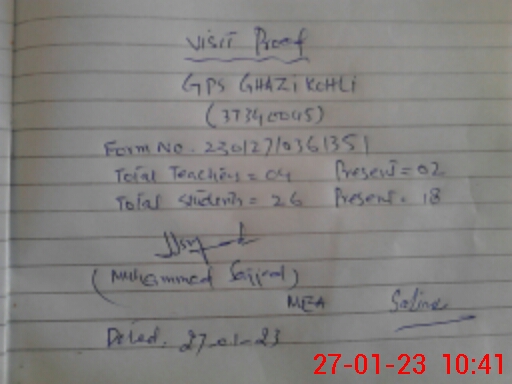 Visit Proof
GPS GHAZi KOHLi
(37340045)
Form No. 23012710361351
Total Teachers = 04 Present = 02
Total Students = 26 Present = 18
(Muhammad Sajjad)
MEA
Dated. 27-01-23
27-01-23 10:41